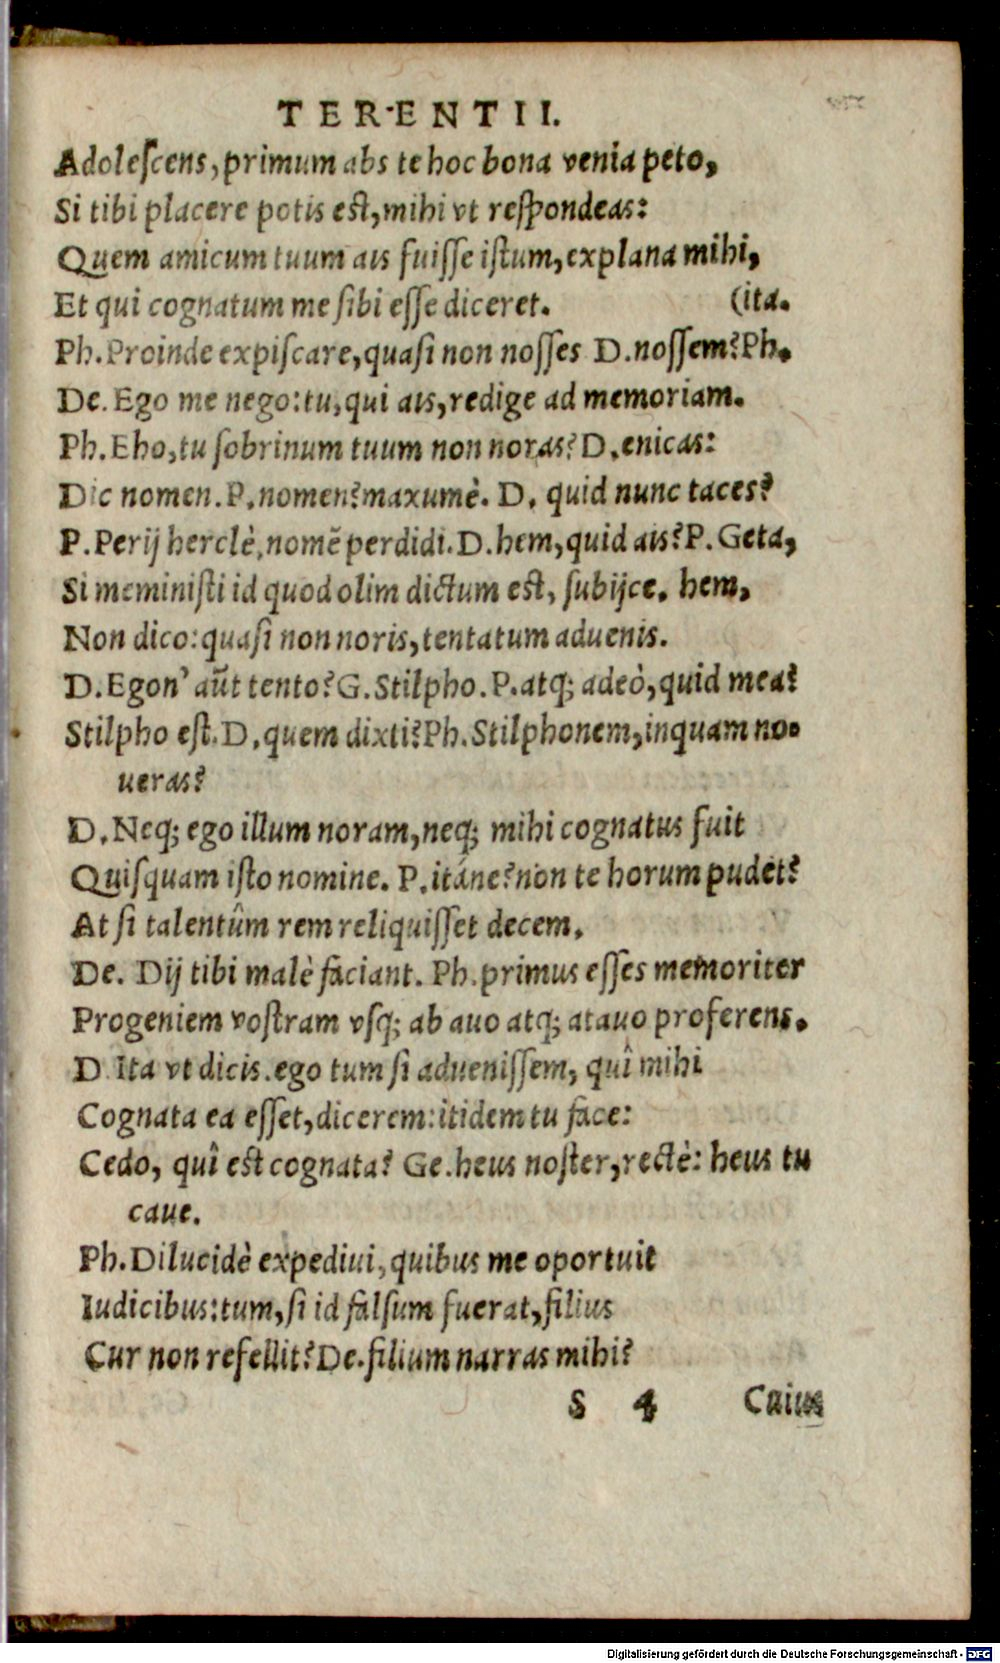 TERENTII.
Adolescens, primum abs te hoc bona venia peto,
Si tibi placere potis est, mihi vt respondeas:
Quem amicum tuum ais fuisse istum, explana mihi,
Et qui cognatum me sibi esse diceret. (ita.
Ph. Proinde expiscare, quasi non nosses D. nossem? Ph.
De. Ego me nego: tu, qui ais, redige ad memoriam.
Ph. Eho, tu sobrinum tuum non noras? D. enicas:
Dic nomen. P. nomen? maxumè. D. quid nunc taces?
P. Perij herclè, nomẽ perdidi. D. hem, quid ais? P. Geta,
Si meministi id quod olim dictum est, subijce. hem,
Non dico: quasi non noris, tentatum aduenis.
D. Egon' aũt tento? G. Stilpho. P. atq; adeò, quid mea?
Stilpho est. D. quem dixti? Ph. Stilphonem, inquam no-
ueras?
D. Neq; ego illum noram, neq; mihi cognatus fuit
Quisquam isto nomine. P. itáne? non te horum pudet?
At si talentûm rem reliquisset decem.
De. Dij tibi malè faciant. Ph. primus esses memoriter
Progeniem vostram vsq; ab auo atq; atauo proferens.
D. Ita vt dicis. ego tum si aduenissem, quî mihi
Cognata ea esset, dicerem: itidem tu face:
Cedo, quî est cognata? Ge. heus noster, rectè: heus tu
caue.
Ph. Dilucidè expediui, quibus me oportuit
Iudicibus: tum, si id falsum fuerat, filius
Cur non refellit? De. filium narras mihi?
S 4 Cuius
Digitalisierung gefördert durch die Deutsche Forschungsgemeinschaft - DFG